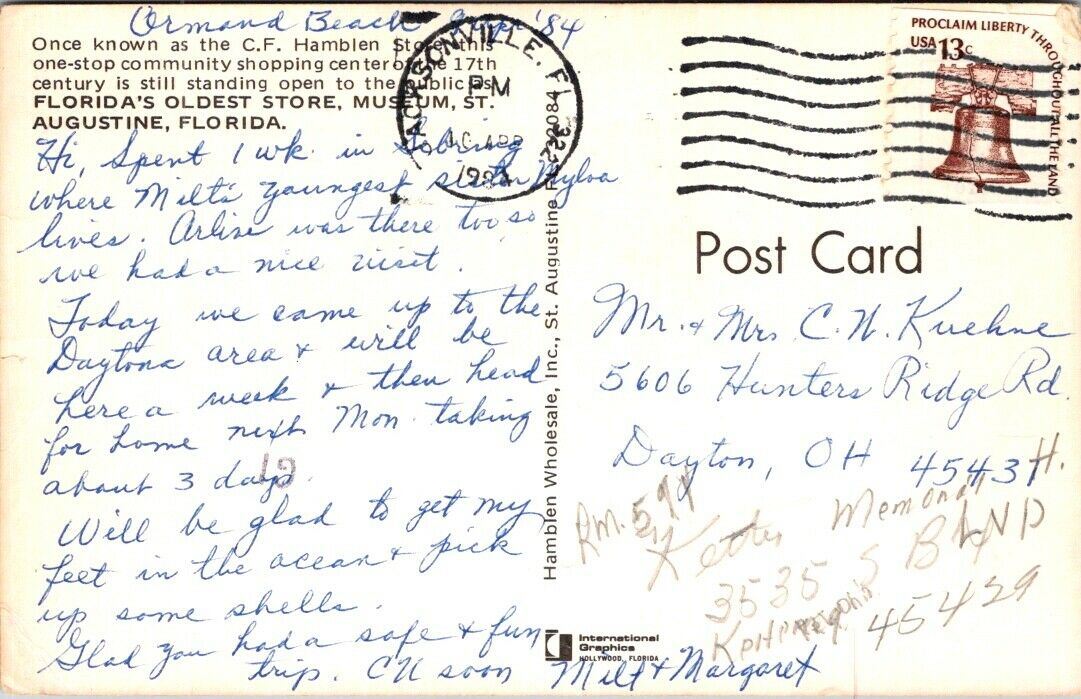 Ormand Beach '84
Once known as the C.F. Hamblen Store, this
one-stop community shopping center of the 17th
century is still standing open to the public as
FLORIDA'S OLDEST STORE, MUSEUM, ST.
AUGUSTINE, FLORIDA.
Hi, Spent 1 wk. in Sebring
where Milt's youngest sister
lives. Arlise was there too so
we had a nice visit.
Today we came up to the
Daytona area & will be
here a week & then head
for home next Mon. taking
about 3 days.
Will be glad to get my
feet in the ocean & pick
up some shells.
Glad you had a safe & fun
trip. CU soon Milt & Margaret
JACKSONVILLE, FL
PM
APR
1984
Hamblen Wholesale, Inc., St. Augustine FL 32084
International
Graphics
HOLLYWOOD, FLORIDA
PROCLAIM LIBERTY THROUGHOUT ALL THE LAND
USA 13c
Post Card
Mr. & Mrs C. N. Kuehne
5606 Hunters Ridge Rd.
Dayton, OH 45431
Rm. 591
Memorial H.
3535 S
45429